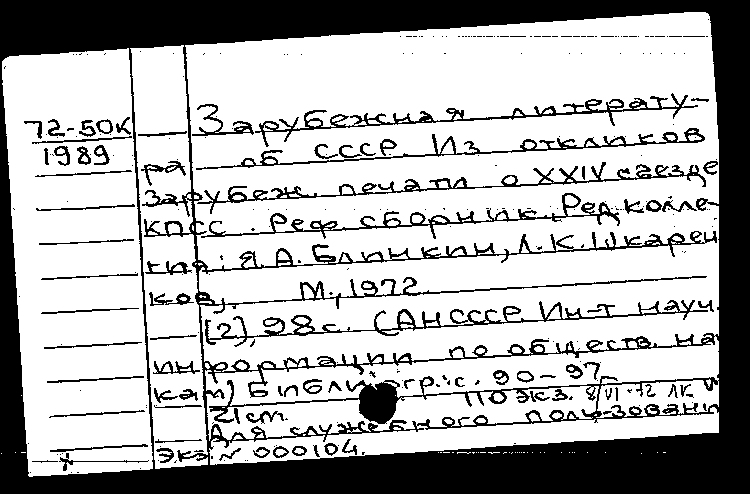 72-50К
1989
Зарубежная литерату-
ра об СССР. Из откликов
зарубеж. печати о XXIV съезде
КПСС. Реф. сборник. Ред. колле-
гия: Я.А. Блинкин, Л.К. Шкарен
ков. М., 1972.
[2], 98 с. (АН СССР. Ин-т науч.
информации по обществ. на
кам) Библиогр.: с. 90-97
21 cm. 110 экз. 8/VI-72 ЛК
Для служебного пользовани
Экз. № 000104.
х